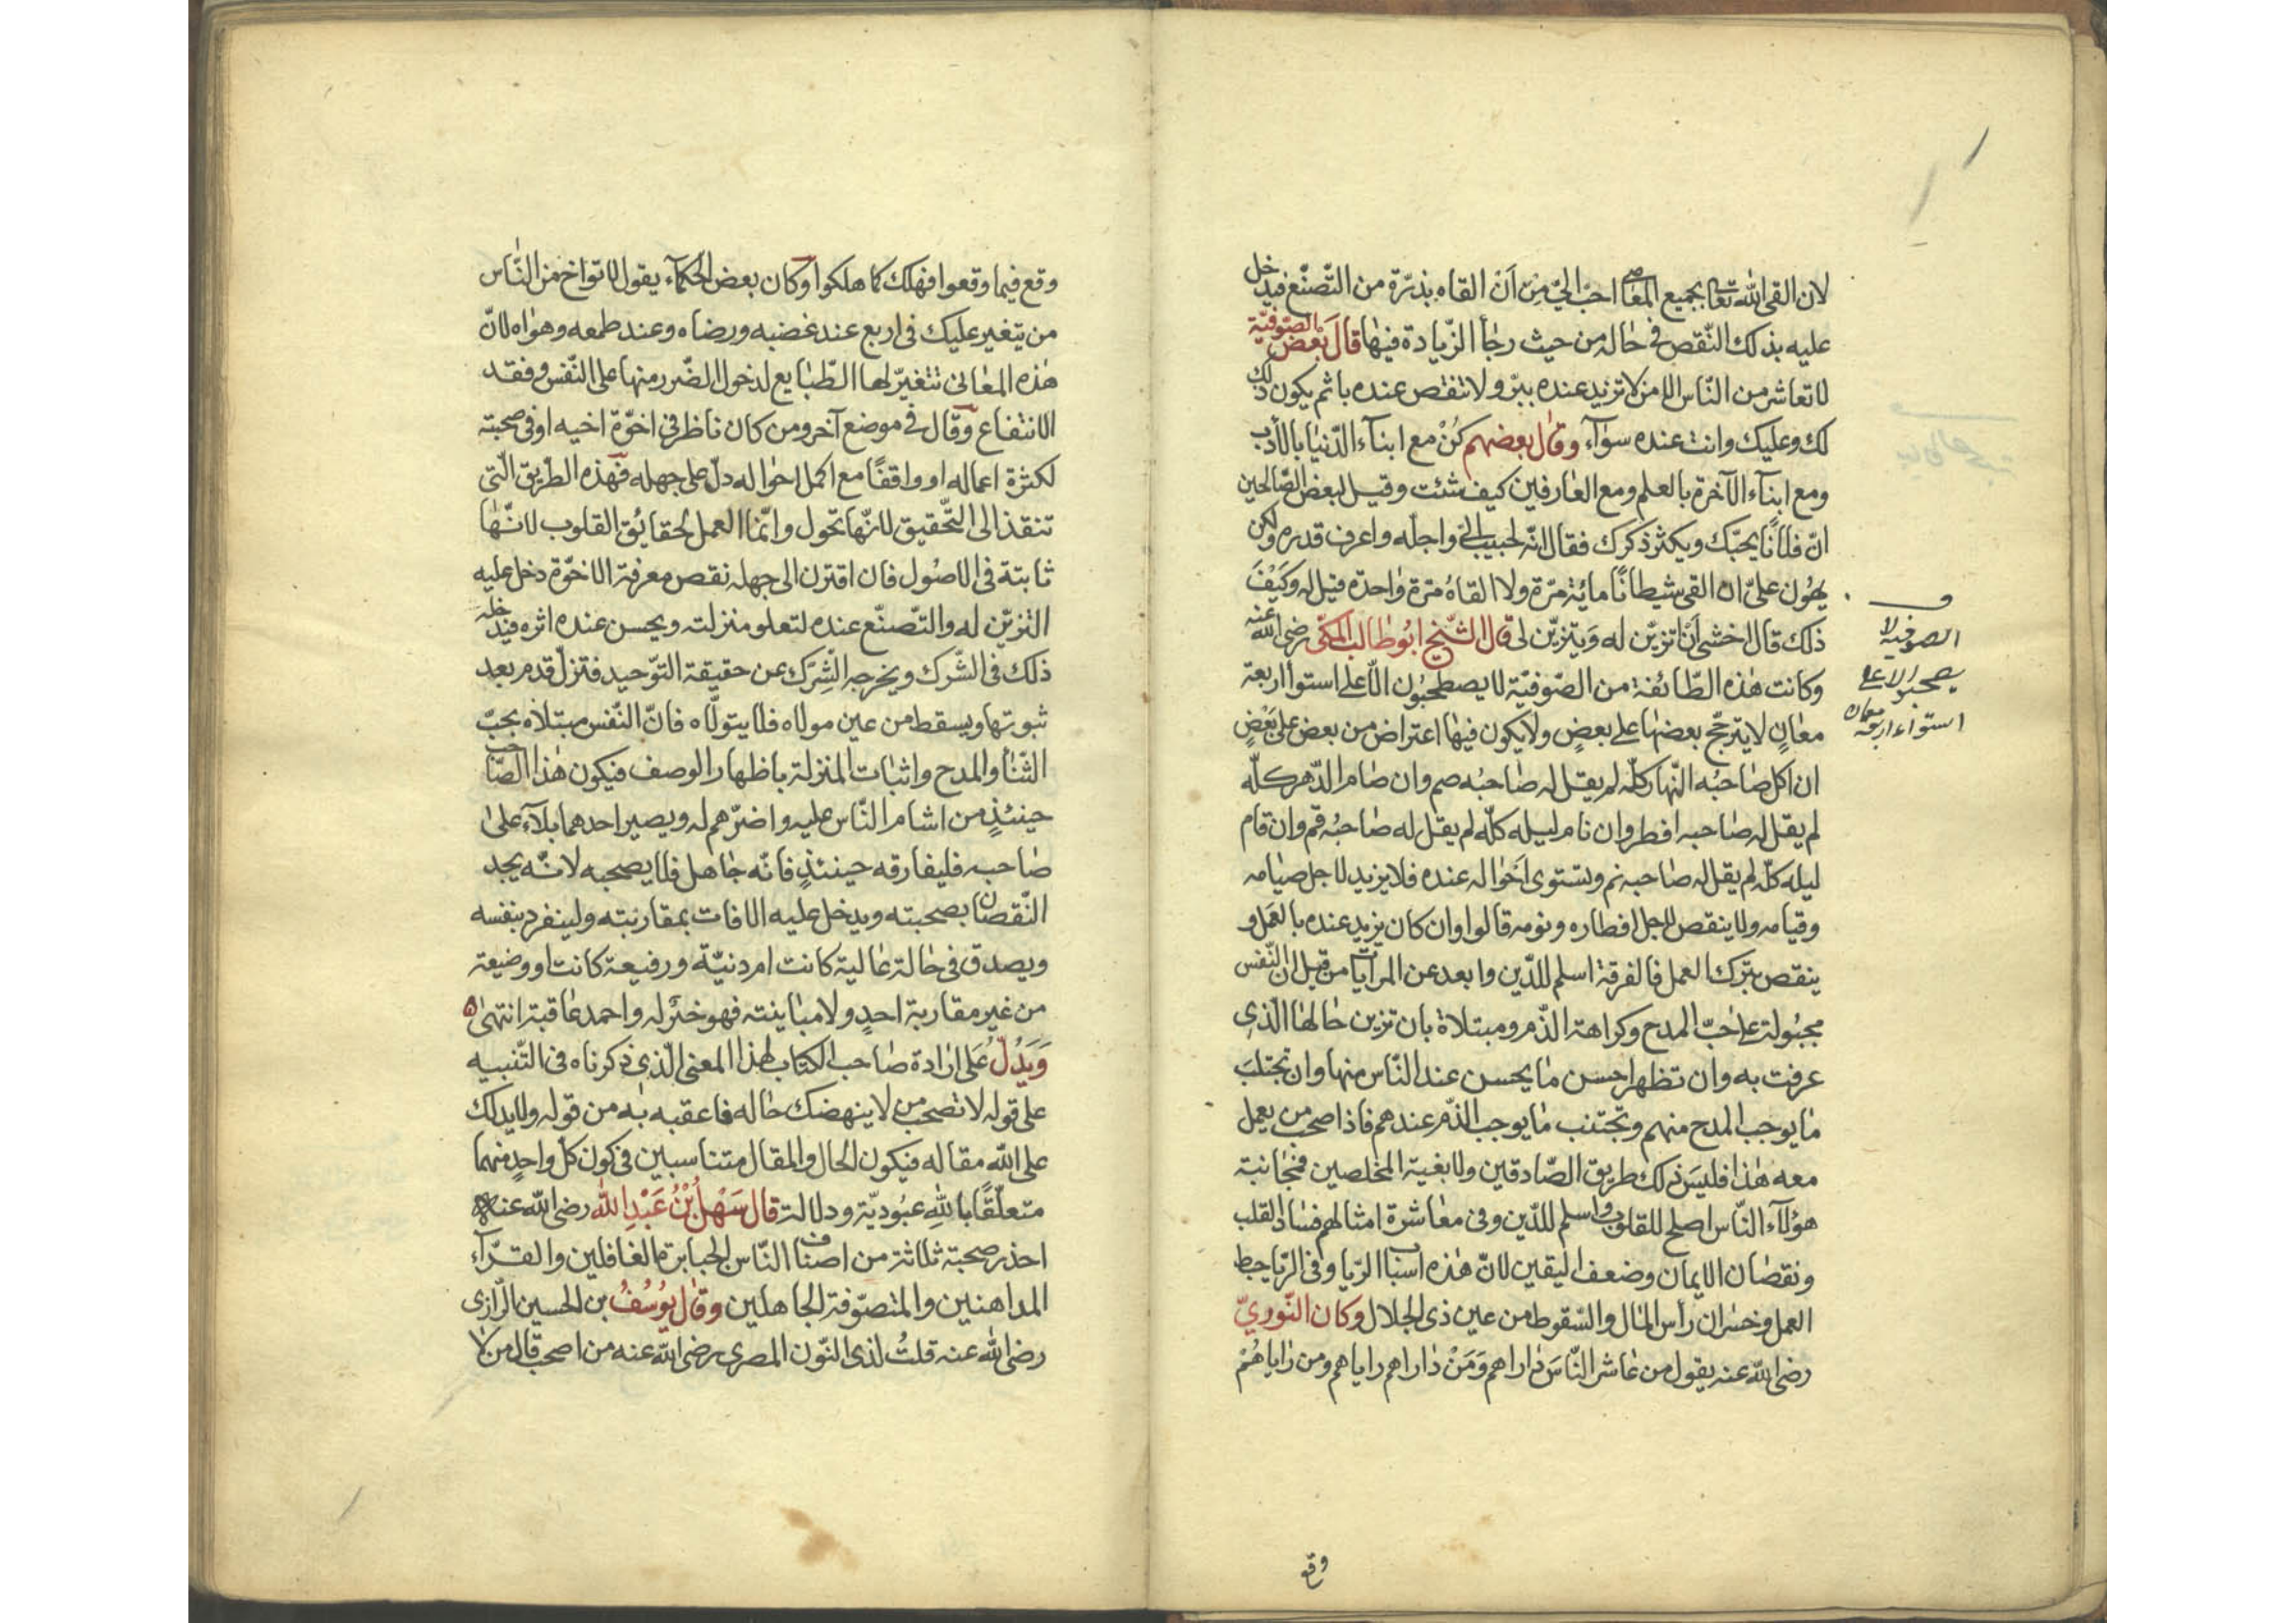 لان القى الله تعالى بجميع المعاصى احب الىّ مِنْ اَنْ القاه بذرّة من التّصنّع فيدخل
عليه بذلك النّقص فى حاله من حيث رجاأ الزّيادة فيها قالَ بَعْضُ الصّوفيّة
لا تعاشر من النّاس الا من لا تزيد عنده ببرّ ولا تنقص عنده باثم يكون ذلك
لك وعليك وانت عنده سوآء وقال بعضهم كُنْ مع ابنآء الدّنيا بالأدب
ومع ابنآء الآخرة بالعلم ومع العارفين كيف شئت وقيل لبعض الصّالحين
انّ فلانًا يحبّك ويكثر ذكرك فقال انّه لحبيب الىّ واجلّه واعرف قدره ولكن
يهُون علىّ ان القى شيطانًا مائة مرّة ولا القاهُ مرّة واحدة فقيل له وكَيْفَ
ذلك قال اخشى اَنْ اتزيّن له وَيتزيّن لى قال الشّيخ ابُوطالب المكّى رضى الله عنه
وكانت هذه الطّائفة من الصّوفيّة لا يصطحبُون الّا على استوآ اربعة
معانٍ لا يترجّح بعضها على بعضٍ ولا يكون فيها اعتراض من بعض على بَعْضٍ
ان اكل صاحبُه النّهار كلّه لم يقل له صاحبُه صم وان صام الدّهر كلّه
لم يقل له صاحبه افطر وان نام ليله كلّه لم يقل له صاحبُه قم وان قام
ليله كلّه لم يقل له صاحبه نم ويستوى اَحْواله عنده فلا يزيد لاجل صيامه
وقيامه ولا ينقص لاجل افطاره ونومه قالوا وان كان يزيد عنده بالعَمَل و
ينقص بترك العمل فالفرقة اسلم للدّين وابعد عن المرآيات من قبل ان النّفس
مجبُولة على حُبّ المدح وكراهة الذّم ومبتلاة بان تزين حالها الّذى
عرفت به وان تظهر احسن ما يحسن عند النّاس منها وان تجتلبَ
ما يوجب المدح منهم وتجتنب ما يوجب الذّم عندهم فاذا صحب من يعمل
معه هذا فليسَ ذلك طريق الصّادقين ولا بغية المخلصين فمجانبة
هؤلآء النّاس اصلح للقلوب واسلم للدّين وفى معاشرة امثالهم فساد القلب
ونقصان الايمان وضعف اليقين لانّ هذه اسباب الرّيا وفى الرّيا حبط
العمل وخسران رأس المال والسّقوط من عين ذى الجلال وكان النّورىّ
رضى الله عنه يقول من عاشر النّاسَ داراهم وَمَنْ داراهم راياهم ومن راياهُمْ
الصوفية لا
يصحبو الا على
استواء اربعة معان
وقع
وقع فيما وقعوا فهلك كما هلكوا وكان بعض الحكمآء يقول لا تواخ من النّاس
من يتغير عليك فى اربع عند غضبه ورضاه وعند طمعه وهواه لانّ
هذه المعانى تتغيّر لها الطّبايع لدخول الضّرر منها على النّفس وفقد
الانتفاع وقال فى موضع آخر ومن كان ناظر فى اخوّة اخيه او فى صحبته
لكثرة اعماله او واقفًا مع اكمل احواله دلّ على جهله فهذه الطّريق الّتى
تنقذ الى التّحقيق لانّها تحول وانّما العمل لحقايُق القلوب لانّها
ثابتة فى الاصُول فان اقترن الى جهله نقص معرفة الاخوّة دخل عليه
التزيّن له والتّصنّع عنده لتعلو منزلته ويحسن عنده اثره فيدخله
ذلك فى الشّرك ويخرجه الشِّرك عن حقيقة التوّحيد فتزلّ قدم بعد
ثبوتها ويسقط من عين مولاه فلا يتولّاه فانّ النّفس مبتلاه بحبّ
الثّنأ والمدح واثبات المنزلة باظهار الوصف فيكون هذا الصّاحب
حينئذٍ من اشام النّاس عليه واضرّهم له ويصير احدهما بلآء على
صاحبه فليفارقه حينئذٍ فانّه جاهل فلا يصحبه لانّه يجد
النّقصان بصحبته ويدخل عليه الافات بمقاربته ولينفرد بنفسه
ويصدق فى حالة عالية كانت ام دنيّة ورفيعة كانت او وضيعة
من غير مقاربة احدٍ ولا مباينته فهو خير له واحمد عاقبة انتهى ه
وَيَدُلّ عَلى ارادة صاحب الكتاب لهذا المعنى الّذى ذكرناه فى التّنبيه
على قوله لا تصحب من لا ينهضك حاله فاعقبه به من قوله ولا يدلك
على الله مقاله فيكون الحال والمقال متناسبين فى كون كلّ واحدٍ منهما
متعلّقًا باللهِ عبُوديّة ودلالة قال سَهْلُ بْنُ عَبْدِ الله رضى الله عنه
احذر صحبة ثلاثة من اصناف النّاس الجبابرة الغافلين والقرّآء
المداهنين والمتصوّفة الجاهلين وقال يوُسُفُ بن الحسين الرّازى
رضى الله عنه قلتُ لذى النّون المصرى رضى الله عنه من اصحب قال من لا